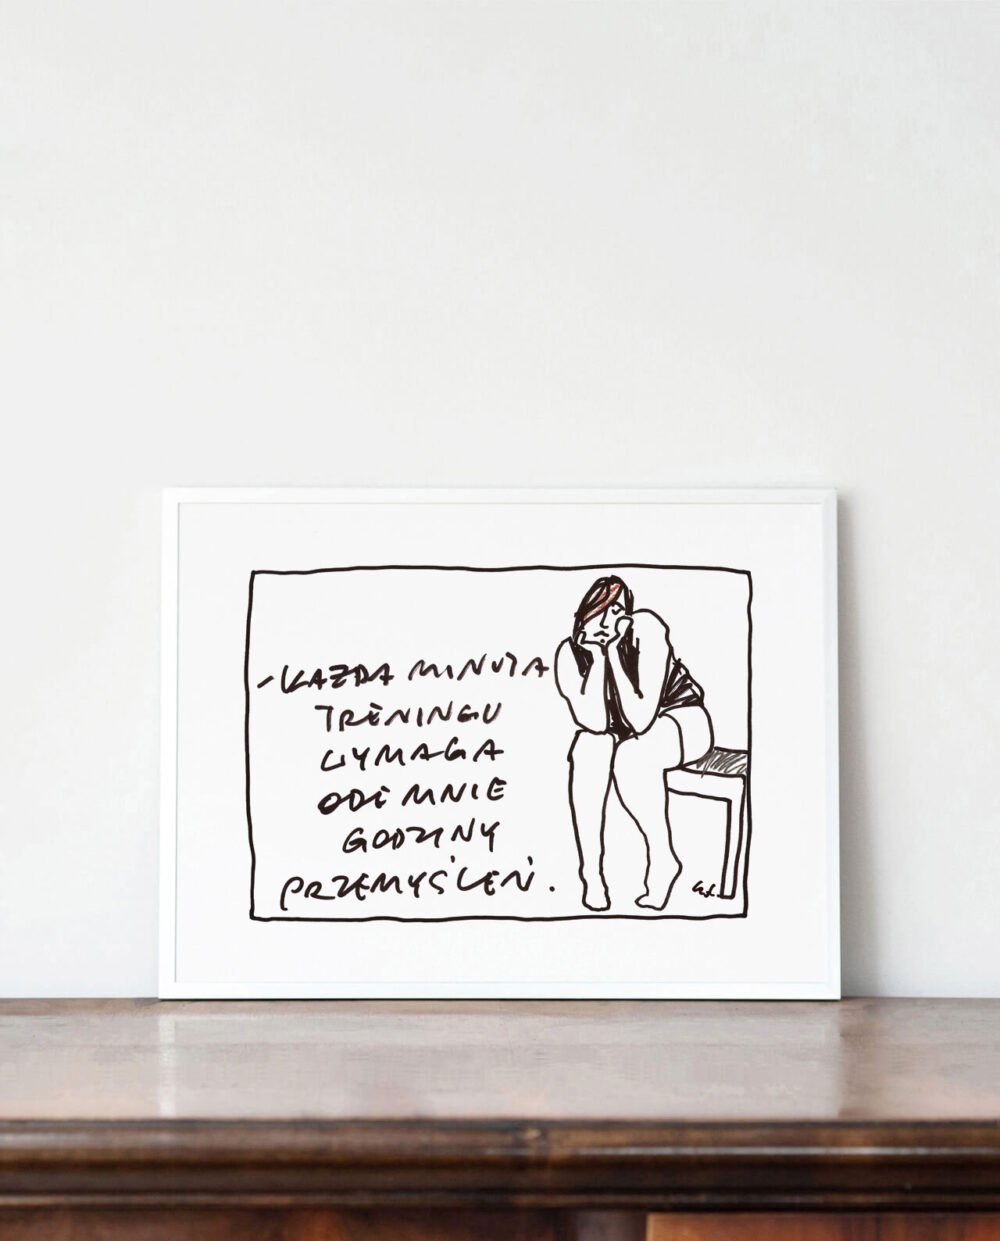 - KAŻDA MINUTA
TRENINGU
WYMAGA
ODE MNIE
GODZINY
PRZEMYŚLEŃ.